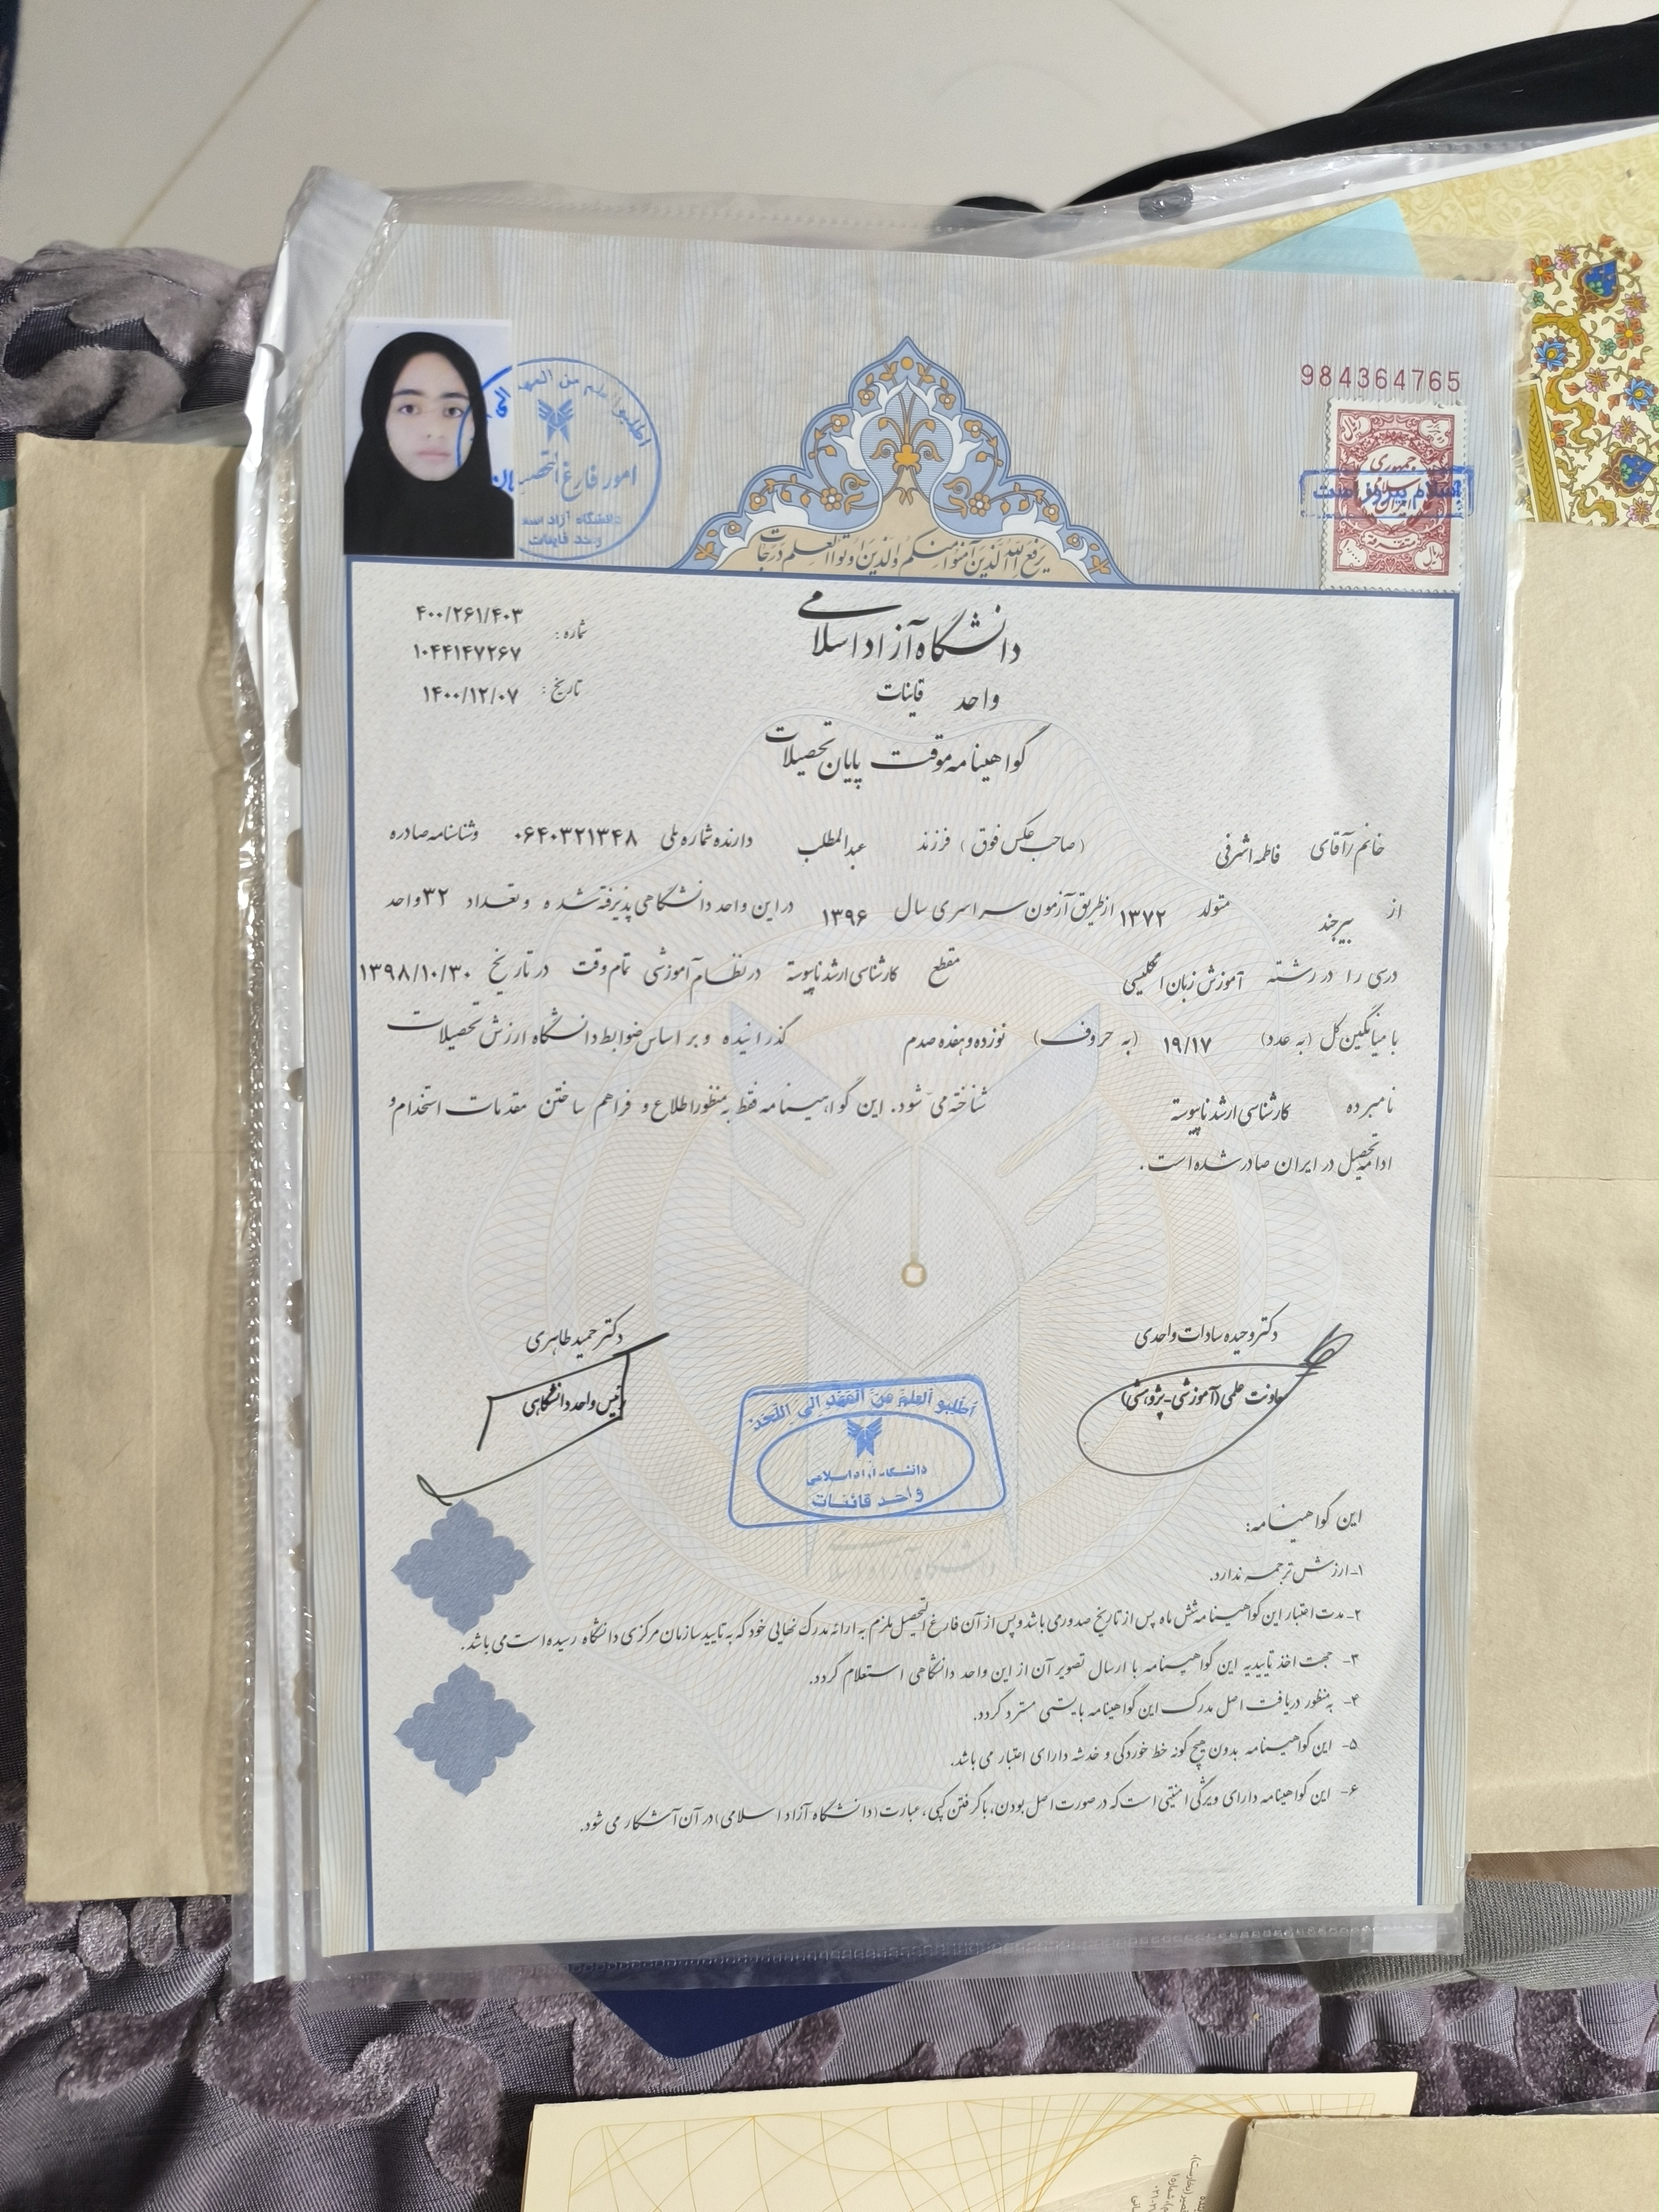 984364765
اطلبوا العلم من المهد الی
امور فارغ التحصیلان
دانشگاه آزاد اسلامی
واحد قاینات
جمهوری اسلامی ایران
اسلام پیروز است
یرفع الله الذین آمنوا منکم والذین اوتوا العلم درجات
دانشگاه آزاد اسلامی
واحد قاینات
شماره: ۴۰۰/۲۶۱/۴۰۳
۱۰۴۴۱۴۷۲۶۷
تاریخ: ۱۴۰۰/۱۲/۰۷
گواهینامه موقت پایان تحصیلات
خانم/آقای فاطمه اشرفی (صاحب عکس فوق) فرزند عبدالمطلب دارنده شماره ملی ۰۶۴۰۳۲۱۳۴۸ و شناسنامه صادره
از بیرجند متولد ۱۳۷۲ از طریق آزمون سراسری سال ۱۳۹۶ در این واحد دانشگاهی پذیرفته شده و تعداد ۳۲ واحد
درسی را در رشته آموزش زبان انگلیسی مقطع کارشناسی ارشد ناپیوسته در نظام آموزشی تمام وقت در تاریخ ۱۳۹۸/۱۰/۳۰
با میانگین کل (به عدد) ۱۹/۱۷ (به حروف) نوزده و هفده صدم گذرانیده و بر اساس ضوابط دانشگاه ارزش تحصیلات
نامبرده کارشناسی ارشد ناپیوسته شناخته می شود. این گواهینامه فقط به منظور اطلاع و فراهم ساختن مقدمات استخدام و
ادامه تحصیل در ایران صادر شده است.
دکتر وحیده سادات واحدی
معاونت علمی (آموزشی-پژوهشی)
دکتر حمید طاهری
رئیس واحد دانشگاهی
اطلبو العلم من المهد الی اللحد
دانشگاه آزاد اسلامی
واحد قائنات
این گواهینامه:
۱- ارزش ترجمه ندارد.
۲- مدت اعتبار این گواهینامه شش ماه پس از تاریخ صدور می باشد و پس از آن فارغ التحصیل ملزم به ارائه مدرک نهایی خود که به تایید سازمان مرکزی دانشگاه رسیده است می باشد.
۳- جهت اخذ تاییدیه این گواهینامه با ارسال تصویر آن از این واحد دانشگاهی استعلام گردد.
۴- به منظور دریافت اصل مدرک این گواهینامه بایستی مسترد گردد.
۵- این گواهینامه بدون هیچ گونه خط خوردگی و خدشه دارای اعتبار می باشد.
۶- این گواهینامه دارای ویژگی امنیتی است که در صورت اصل بودن، با گرفتن کپی، عبارت (دانشگاه آزاد اسلامی) در آن آشکار می شود.